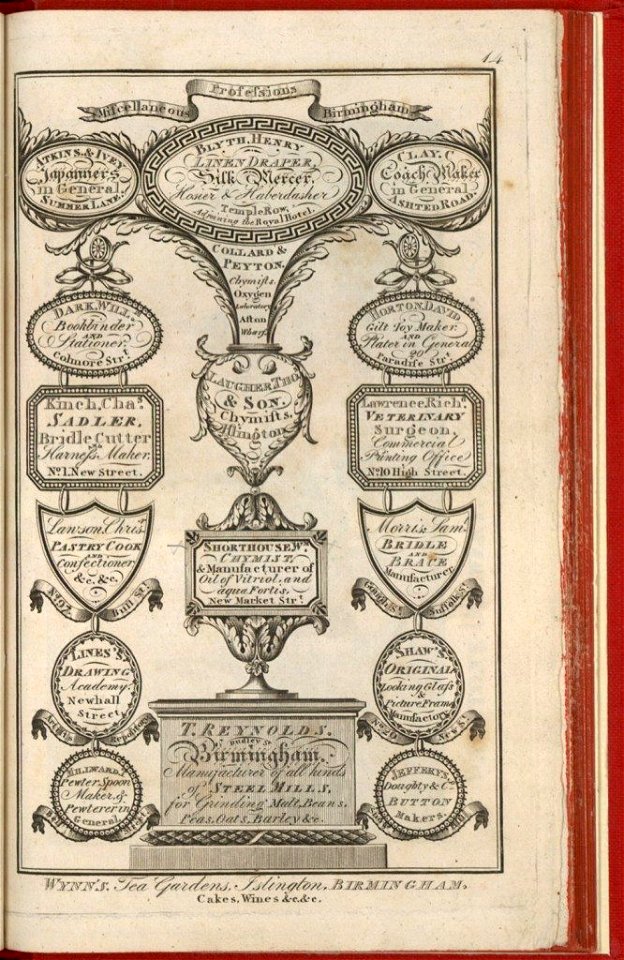 14
Miscellaneous Professions Birmingham
ATKINS, & IVEY
Japanners
in General
SUMMER LANE.
BLYTH, HENRY
LINEN DRAPER,
Silk Mercer,
Hosier & Haberdasher
Temple Row,
Adjoining the Royal Hotel.
CLAY, C
Coach Maker
in General
ASHTED ROAD.
COLLARD &
PEYTON,
Chymists,
Oxygen
Laboratory
Aston
Wharf.
DARK, WILL.
Bookbinder
AND
Stationer.
Colmore Strt.
HORTON, DAVID
Gilt Toy Maker
AND
Plater in General
20
Paradise Strt.
LAUGHER, THOs.
& SON,
Chymists,
Islington
Kinch, Chas.
SADLER,
Bridle Cutter
&
Harness Maker.
No. 1, New Street.
Lawrence, Richd.
VETERINARY
Surgeon,
Commercial
Printing Office
No. 10 High Street.
Lawson, Christ.
PASTRY COOK
AND
Confectioner,
&c. &c.
No. 97 Bull St.
SHORTHOUSE, Wm.
CHYMIST,
& Manufacturer of
Oil of Vitriol, and
aqua Fortis,
New Market Strt.
Morris, Saml.
BRIDLE
AND
BRACE
Manufacturer.
Gough St. Suffolk St.
LINES'S
DRAWING
Academy.
Newhall
Street
SHAW'S
ORIGINAL
Looking Glass
&
Picture Frame
Manufactory
No. 20 New St.
T. REYNOLDS.
Dudley St
Birmingham,
Manufacturer of all kinds
of STEEL MILLS,
for Grinding Malt, Beans,
Peas, Oats, Barley &c.
MILLWARD,
Pewter Spoon
Maker, &
Pewterer in
General,
JEFFERYS,
Doughty & Co.
BUTTON
Makers.
WYNN'S, Tea Gardens, Islington, BIRMINGHAM,
Cakes, Wines &c. &c.